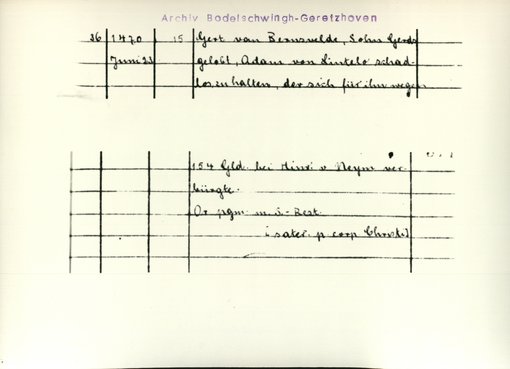 Archiv Bodelschwingh-Geretzhoven
26 1470 15 Gert van Bernsvelde, Sohn Gerds
Juni 23 gelobt, Adam von Lintelo schad-
los zu halten, der sich für ihn wegen
154 Gld. bei Hinr. v. Heym ver-
bürgte.
Or. pgm. m. S.-Rest.
[sater. p. corp. Christi]